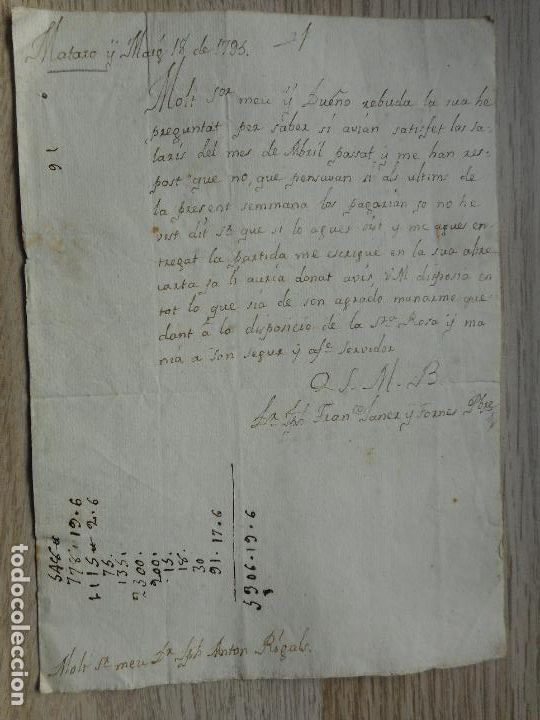 Mataro y Maig 18 de 1795.
Molt sor meu y Dueño rebuda la sua he
preguntat per saber si avian satisfet los sa-
laris del mes de Abril passat y me han res-
post que no, que pensavan si als ultims de
la present semmana los pagarian jo no he
vist dit Sr que si lo agues vist y me agues en-
tregat la partida me escrigue en la sua
carta ja li auria donat avis VM disposia en
tot lo que sia de son agrado manarme que
dant à lo disposicio de la Sra Rosa y ma
nia a son segur y afe servidor
Q S. M. B
Dr Jph Franco Janer y Fornes Pbre
Molt Sr meu Dr Jph Anton Rëgals.
91
778.19.6
1115 2.6
75.
135.
2300.
200.
15.
18.
30
91.17.6
5906.19.6
todocoleccion